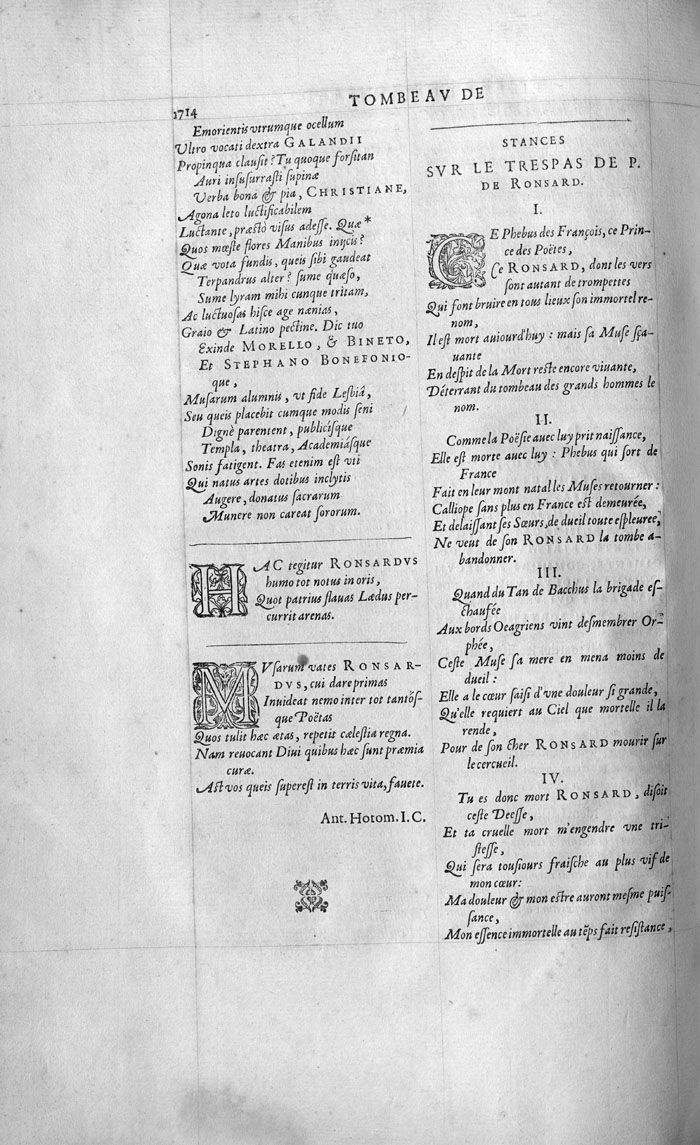 1714
TOMBEAV DE
Emorientis vtrumque ocellum
Vltro vocati dextra GALANDII
Propinqua clausit? Tu quoque forsitan
Auri insusurrasti supinæ
Verba bona & pia, CHRISTIANE,
Agona leto luctificabilem
Luctante, præstò visus adesse. Quæ*
Quos mœste flores Manibus inijcis?
Quæ vota fundis, queis sibi gaudeat
Terpandrus alter? sume quæso,
Sume lyram mihi cunque tritam,
Ac luctuosas hisce age nænias,
Graio & Latino pectine. Dic tuo
Exinde MORELLO, & BINETO,
Et STEPHANO BONEFONIO-
que,
Musarum alumnis, vt fide Lesbiâ,
Seu queis placebit cumque modis seni
Dignè parentent, publicísque
Templa, theatra, Academiásque
Sonis fatigent. Fas etenim est vti
Qui natus artes dotibus inclytis
Augere, donatus sacrarum
Munere non careat sororum.
HAC tegitur RONSARDVS
humo tot notus in oris,
Quot patrius flauas Lædus per-
currit arenas.
MVsarum vates RONSAR-
DVS, cui dare primas
Inuideat nemo inter tot tantós-
que Poëtas
Quos tulit hæc ætas, repetit cælestia regna.
Nam reuocant Diui quibus hæc sunt præmia
curæ.
Ast vos queis superest in terris vita, fauete.
Ant. Hotom. I. C.
STANCES
SVR LE TRESPAS DE P.
DE RONSARD.
I.
CE Phebus des François, ce Prin-
ce des Poëtes,
Ce RONSARD, dont les vers
sont autant de trompettes
Qui font bruire en tous lieux son immortel re-
nom,
Il est mort auiourd'huy : mais sa Muse sça-
uante
En despit de la Mort reste encore viuante,
Déterrant du tombeau des grands hommes le
nom.
II.
Comme la Poësie auec luy prit naissance,
Elle est morte auec luy : Phebus qui sort de
France
Fait en leur mont natal les Muses retourner :
Calliope sans plus en France est demeurée,
Et delaissant ses Sœurs, de dueil toute espleuree,
Ne veut de son RONSARD la tombe a-
bandonner.
III.
Quand du Tan de Bacchus la brigade es-
chaufée
Aux bords Oeagriens vint desmembrer Or-
phée,
Ceste Muse sa mere en mena moins de
dueil :
Elle a le cœur saisi d'vne douleur si grande,
Qu'elle requiert au Ciel que mortelle il la
rende,
Pour de son cher RONSARD mourir sur
le cercueil.
IV.
Tu es donc mort RONSARD, disoit
ceste Deesse,
Et ta cruelle mort m'engendre vne tri-
stesse,
Qui sera tousiours fraische au plus vif de
mon cœur:
Ma douleur & mon estre auront mesme puis-
sance,
Mon essence immortelle au tẽps fait resistance,